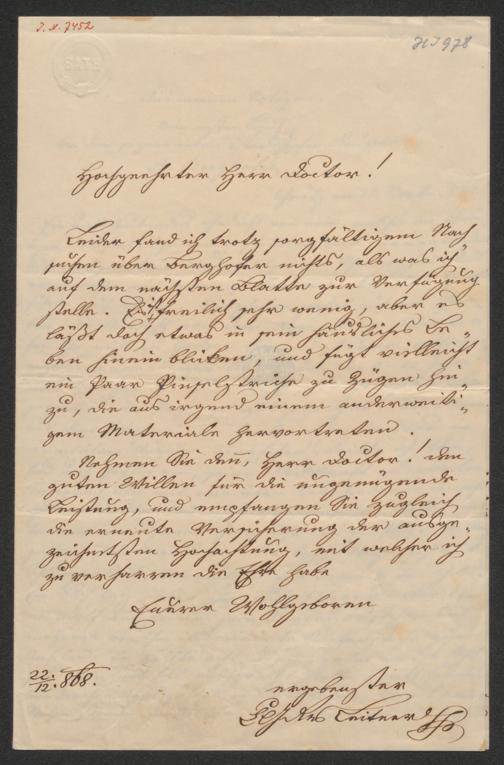 J. N. 7452
H I 978
BATH
Hochgeehrter Herr Doctor!
Leider fand ich trotz sorgfältigem Nach
suchen über Berghofer nichts, als was ich
auf dem nächsten Blatte zur Verfügung
stelle. Es ist freilich sehr wenig, aber es
läßt doch etwas in sein häusliches Le-
ben hinein blicken, und fügt vielleicht
ein Paar Pinselstriche zu Zügen hin-
zu, die aus irgend einem anderweiti-
gem Materiale hervortreten.
Nehmen Sie den̄, Herr Doctor! den
guten Willen für die ungenügende
Leistung, und empfangen Sie zugleich
die erneute Versicherung der ausge-
zeichnetsten Hochachtung, mit welcher ich
zu verharren die Ehre habe
Euerer Wohlgeboren
22./12. 868.
ergebenster
Leitner